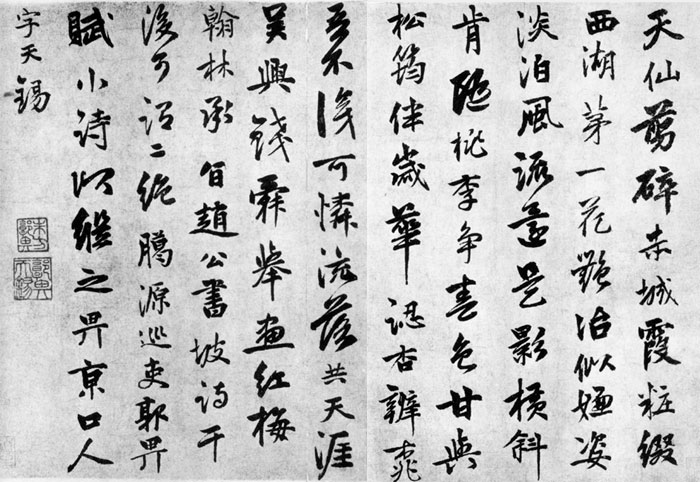 天仙剪碎赤城霞粧綴
西湖第一花艷冶似嫌姿
淡泊風流還是影橫斜
肯隨桃李爭春色甘與
松筠伴歲華認杏辨桃
吾不復可憐流落共天涯
吳興錢舜舉畫紅梅
翰林承旨趙公書坡詩于
後可謂二絕騰源巡吏郭畀
賦小詩以繼之畀京口人
字天錫